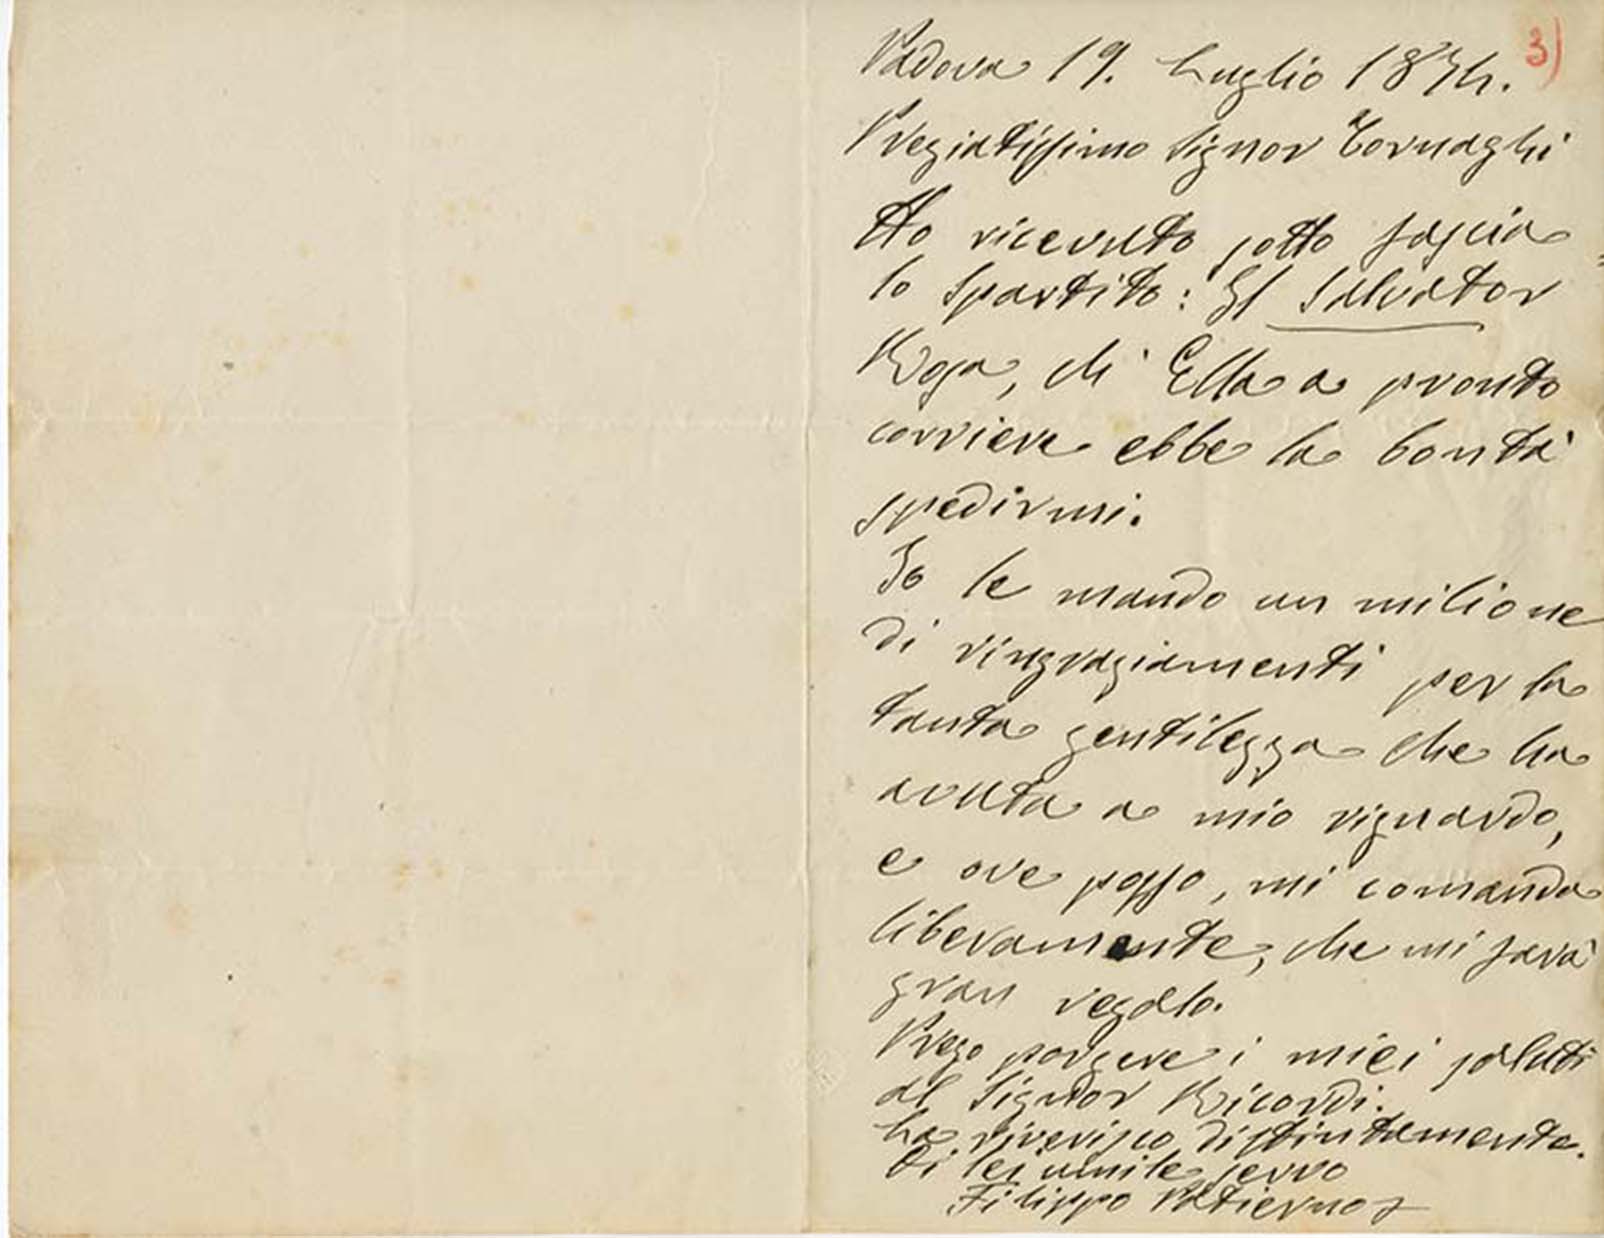 3)
Padova 19. Luglio 1874.
Pregiatissimo Signor Tornaghi
Ho ricevuto sotto fascia
lo Spartito: Il Salvator
Rosa, chi Ella a pronto
corriere ebbe la bontà
spedirmi.
Io le mando un milione
di ringraziamenti per la
tanta gentilezza che ha
avuta a mio riguardo,
e ove posso, mi comanda
liberamente, che mi sarà
gran regalo.
Prego porgere i miei saluti
al Signor Ricordi.
La riverisco distintamente.
Di lei umile servo
Filippo Patierno